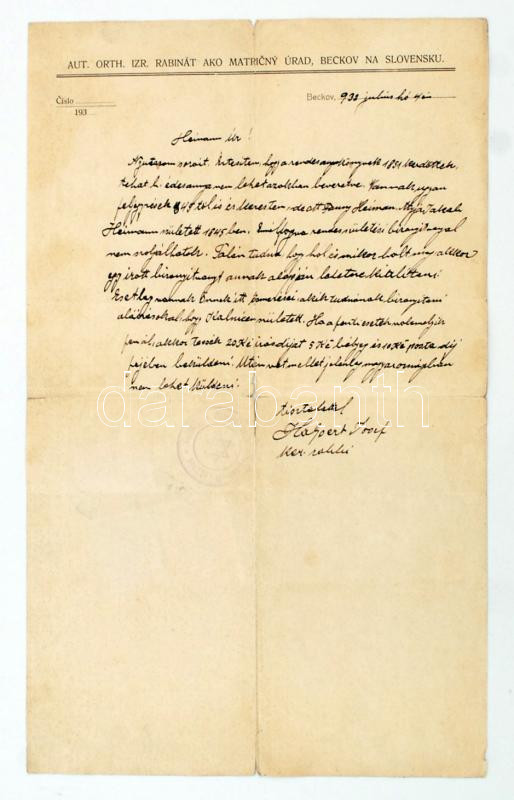 AUT. ORTH. IZR. RABINÁT AKO MATRIČNÝ ÚRAD, BECKOV NA SLOVENSKU.
Číslo
193
Beckov, 933 július hó
Heimann Úr!
soraít. Értesítem, hogy a rendes anyakönyvek 1851 kezdettek
tehát b. édesanyja nem lehet azokban bevezetve. Vannak ugyan
feljegyzések 848 tól és és kerestem de ott Fanny Heiman.
Heimann született 1845 ben. Ennélfogva rendes születési bizonyítványal
nem szolgálhatok. Talán tudna hogy hol és mikor holt meg akkor
egy írott bizonyítványt annak alapján lehetne kiállítani
Esetleg vannak Önnek itt ismerősei akik tudnának bizonyítani
aláírásokkal hogy Kalnicen született. Ha a fenti esetek valamelyik
fenáll, akkor tessék 20 Kč írásdíjat 5 Kč bélyeg és 10 Kč posta díj
fejében beküldeni. Utánvét mellet jelenleg magyarországban
nem lehet küldeni.
tisztelettel
Halpert Josef
ker. rabbi
darabanth